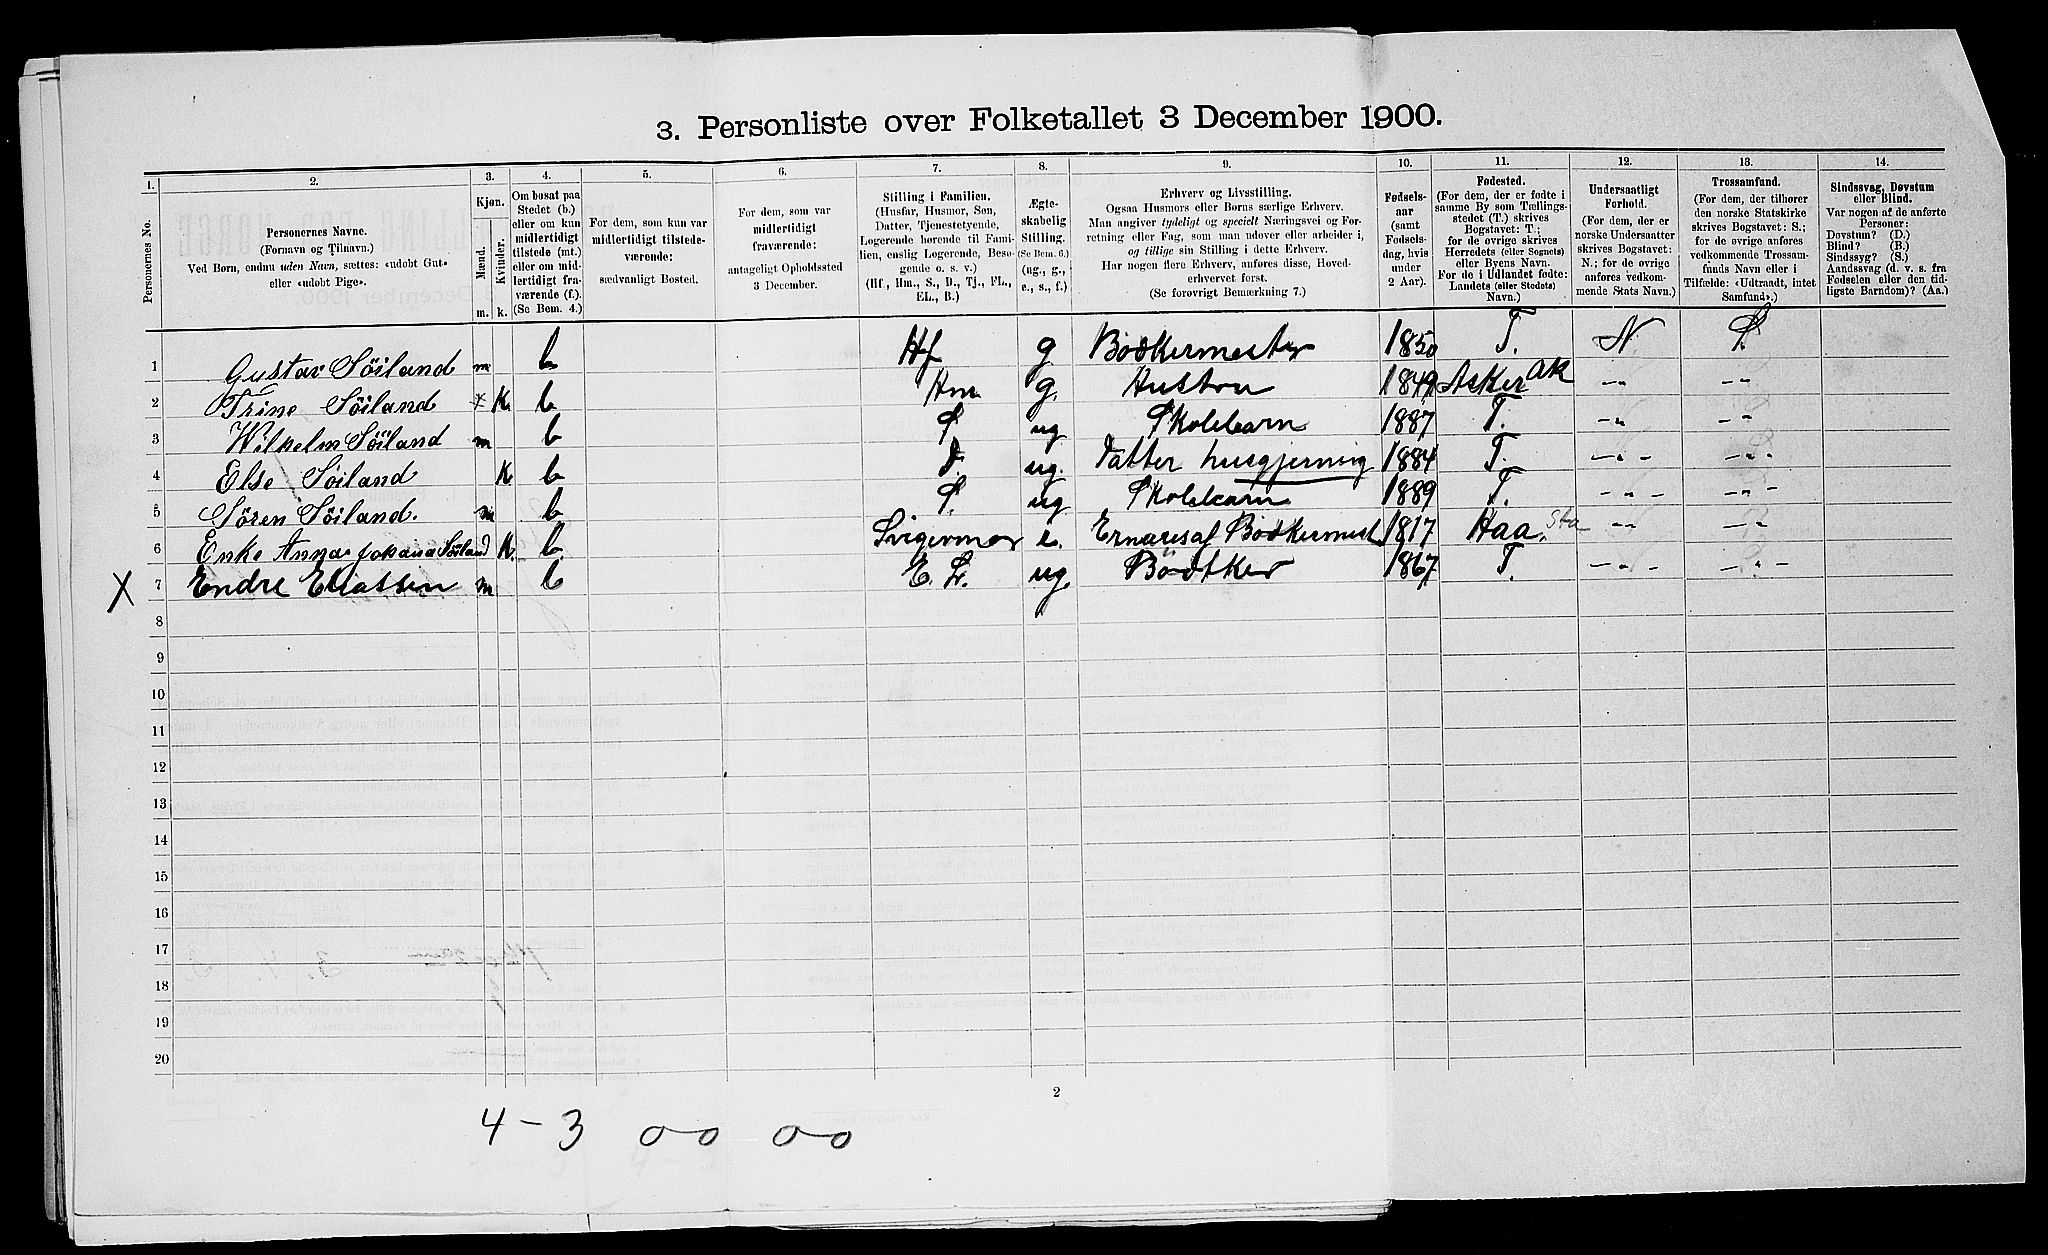 3. Personliste over Folketallet 3 December 1900.
1. 2. 3. 4. 5. 6. 7. 8. 9. 10. 11. 12. 13. 14.
Personernes No.
Personernes Navne.
(Fornavn og Tilnavn.)
Ved Børn, endnu uden Navn, sættes: «udobt Gut»
eller «udobt Pige».
Kjøn.
Mænd.
Kvinder.
m. k.
Om bosat paa
Stedet (b.)
eller om kun
midlertidigt
tilstede (mt.)
eller om mid-
lertidigt fra-
værende (f.).
(Se Bem. 4.)
For dem, som kun var
midlertidigt tilstede-
værende:
sædvanligt Bosted.
For dem, som var
midlertidigt
fraværende:
antageligt Opholdssted
3 December.
Stilling i Familien.
(Husfar, Husmor, Søn,
Datter, Tjenestetyende,
Logerende hørende til Fami-
lien, enslig Logerende, Besø-
gende o. s. v.)
(Hf., Hm., S., D., Tj., FL.,
EL., B.)
Ægte-
skabelig
Stilling.
(Se Bem. 6.)
(ug., g.,
e., s., f.)
Erhverv og Livsstilling.
Ogsaa Husmors eller Børns særlige Erhverv.
Man angiver tydeligt og specielt Næringsvei og For-
retning eller Fag, som man udøver eller arbeider i,
og tillige sin Stilling i dette Erhverv.
Har nogen flere Erhverv, anføres disse, Hoved-
erhvervet først.
(Se forøvrigt Bemærkning 7.)
Fødsels-
aar
(samt
Fødsels-
dag, hvis
under
2 Aar).
Fødested.
(For dem, der er fødte i
samme By som Tællings-
stedet (T.) skrives
Bogstavet: T.;
for de øvrige skrives
Herredets (eller Sognets)
eller Byens Navn.
For de i Udlandet fødte:
Landets (eller Stedets)
Navn.)
Undersaatligt
Forhold.
(For dem, der er
norske Undersaatter
skrives Bogstavet:
N.; for de øvrige
anføres vedkom-
mende Stats Navn.)
Trossamfund.
(For dem, der tilhører
den norske Statskirke
skrives Bogstavet: S.;
for de øvrige anføres
vedkommende Trossam-
funds Navn eller i
Tilfælde: «Udtraadt, intet
Samfund».)
Sindssvag, Døvstum
eller Blind.
Var nogen af de anførte
Personer:
Døvstum? (D.)
Blind? (B.)
Sindssyg? (S.)
Aandssvag (d. v. s. fra
Fødselen eller den tid-
ligste Barndom)? (Aa.)
1 Gustav Söiland m b Hf g Bödkermester 1850 T. N. S.
2 Trine Söiland K b Hm g. Hustru 1849 Asker Ak -"- -"-
3 Wilhelm Söiland m b S ug Skolebarn 1887 T. -"- -"-
4 Else Söiland K b d. ug. datter husgjerning 1884 T. -"- -"-
5 Sören Söiland. m b S. ug Skolebarn 1889 T. -"- -"-
6 Enke Anna Johana Söiland K. b Svigermor e. Ernæres af Bödkermest 1817 Haa. Sta -"- -"-
X 7 Endre Eliassen m b E. L. ug. Bödtker 1867 T. -"- -"-
8
9
10
11
12
13
14
15
16
17
18
19
20
2
4 - 3 0 0 0 0